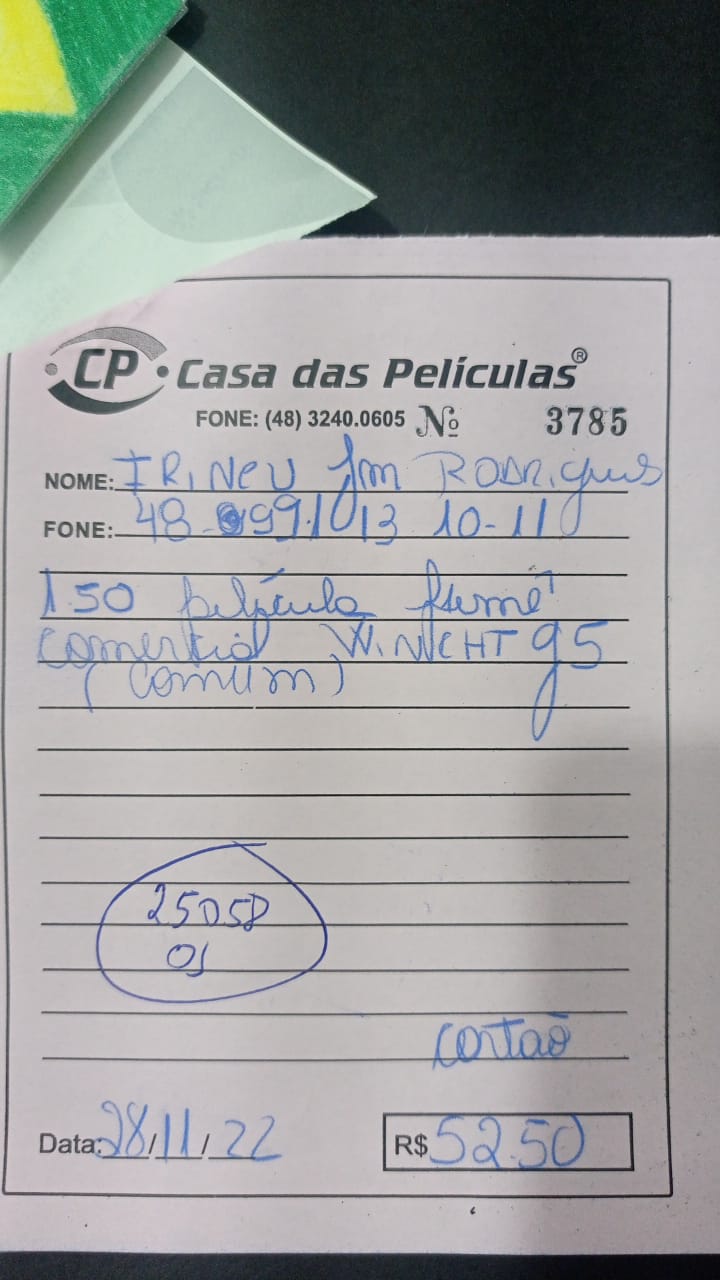 CP Casa das Películas®
FONE: (48) 3240.0605 Nº 3785
NOME: IRINEU Jm RODRigues
FONE: 48 991013 10-11
1.50 película fumê
comercial WINCHT g5
(comum)
25058
OS
cartão
Data: 28/11/22 R$ 52.50